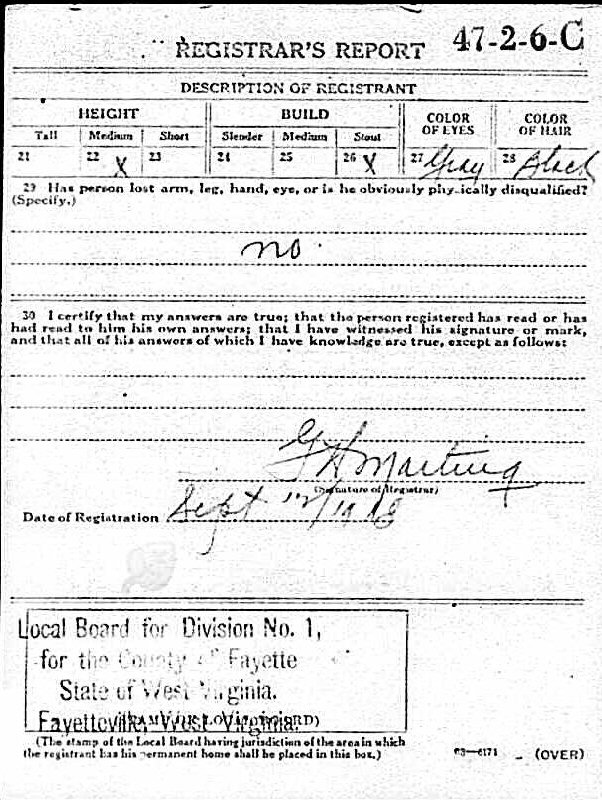 REGISTRAR'S REPORT 47-2-6-C
DESCRIPTION OF REGISTRANT
HEIGHT BUILD COLOR OF EYES COLOR OF HAIR
Tall Medium Short Slender Medium Stout
21 22 X 23 24 25 26 X 27 Gray 28 Black
29 Has person lost arm, leg, hand, eye, or is he obviously physically disqualified?
(Specify.)
no.
30 I certify that my answers are true; that the person registered has read or has
had read to him his own answers; that I have witnessed his signature or mark,
and that all of his answers of which I have knowledge are true, except as follows:
G H Marting
(Signature of Registrar)
Date of Registration Sept 12/1918
Local Board for Division No. 1,
for the County of Fayette
State of West Virginia.
Fayetteville, West Virginia.
(STAMP OF LOCAL BOARD)
(The stamp of the Local Board having jurisdiction of the area in which
the registrant has his permanent home shall be placed in this box.)
03—6171 (OVER)